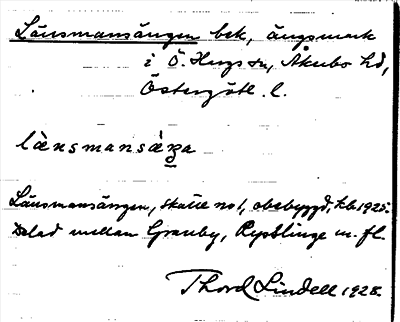 Länsmansängen bek, ängsmark
i Ö. Husby sn, Åkerbo hd,
Östergötl. l.
lànsmansàṉa
Länsmansängen, skatte no 1, obebyggd, kb. 1925.
Delad mellan Granby, Rystinge m. fl.
Thord Lindell 1928.